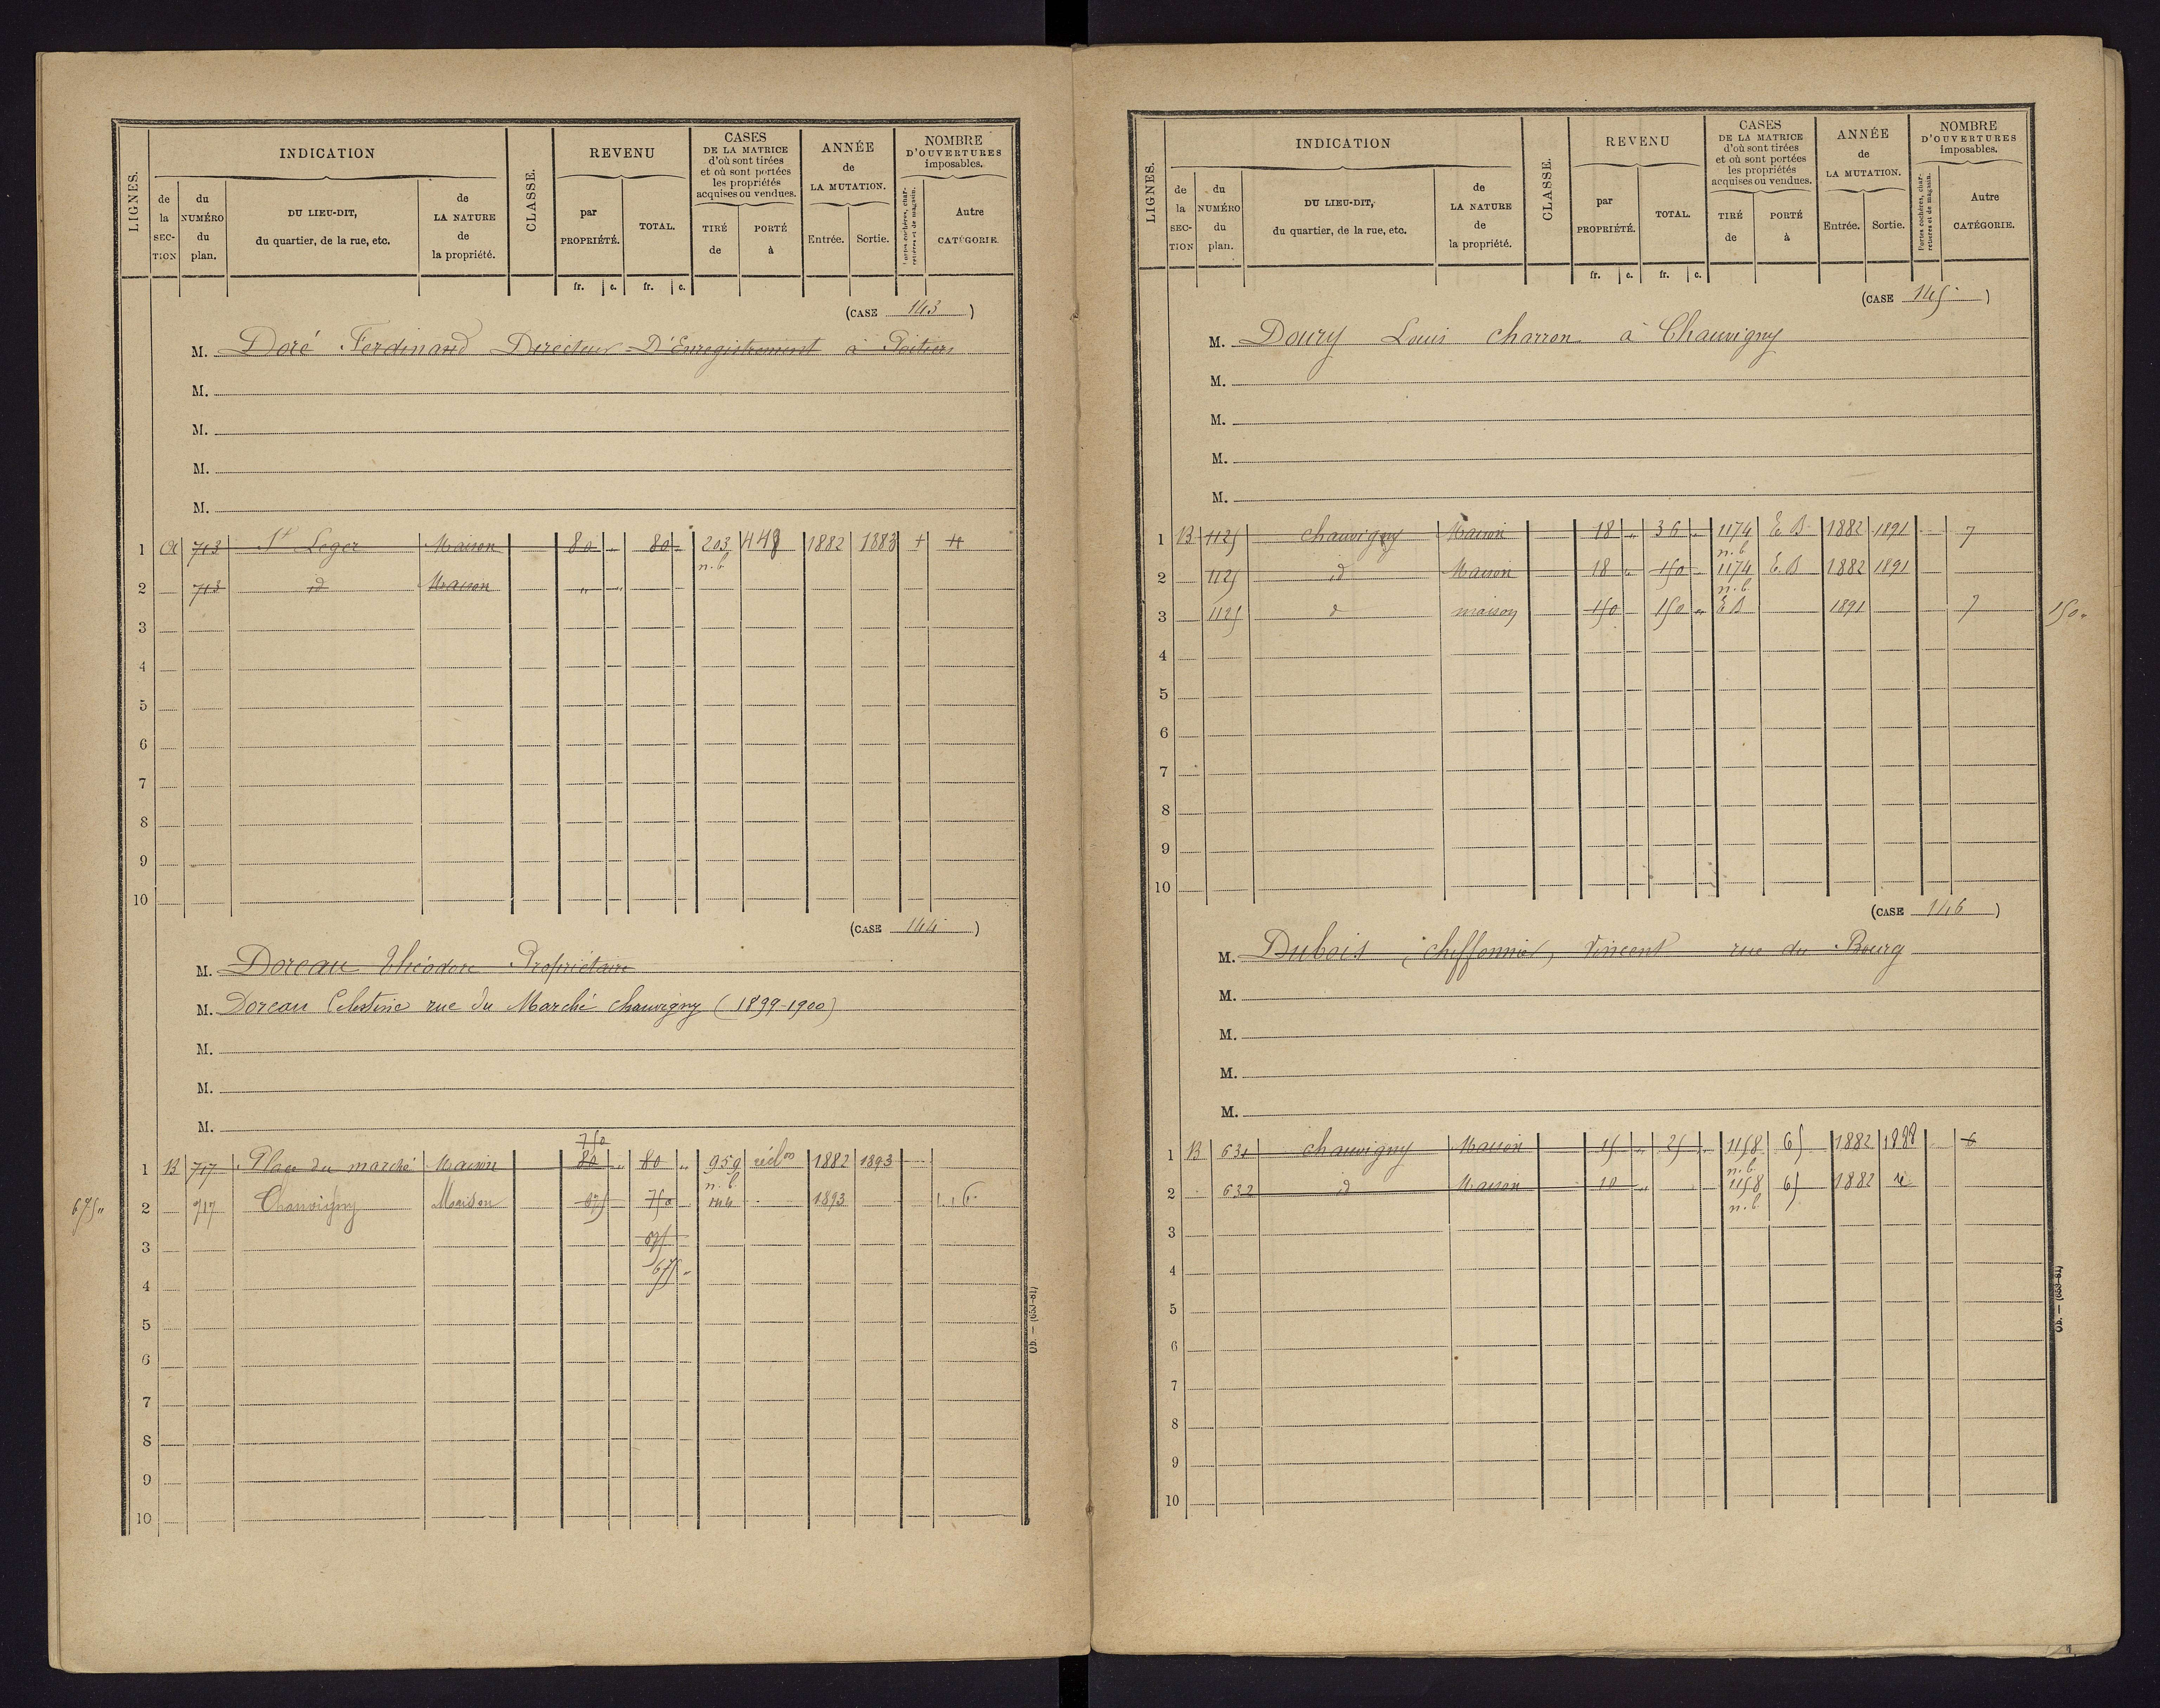 LIGNES.
INDICATION
CLASSE.
REVENU
CASES
DE LA MATRICE
d'où sont tirées
et où sont portées
les propriétés
acquises ou vendues.
ANNÉE
de
LA MUTATION.
NOMBRE
D'OUVERTURES
imposables.
de la SEC-TION
du NUMÉRO du plan.
DU LIEU-DIT,
du quartier, de la rue, etc.
de LA NATURE de la propriété.
par PROPRIÉTÉ.
TOTAL.
TIRÉ de
PORTÉ à
Entrée.
Sortie.
Portes cochères, char-
retières et de magasin.
Autre CATÉGORIE.
fr. c. fr. c.
(CASE 143)
M. Doré Ferdinand Directeur D'Enregistrement à Poitiers
M.
M.
M.
M.
1 713 St Leger Maison 80 " 80 " 203 n.b 448 1882 1883
2 713 id Maison " "
3
4
5
6
7
8
9
10
(CASE 144)
M. Doreau Théodore Propriétaire
M. Doreau Célestine rue du Marché Chauvigny (1899-1900)
M.
M.
M.
750
1 B 717 Place du marché Maison 80 " 80 " 959 n.b. récl.on 1882 1893
675 " 2 717 Chauvigny Maison 750 144 1893 6
3
4 675 "
5
6
7
8
9
10
Ob. — (653-81)
LIGNES.
INDICATION
CLASSE.
REVENU
CASES
DE LA MATRICE
d'où sont tirées
et où sont portées
les propriétés
acquises ou vendues.
ANNÉE
de
LA MUTATION.
NOMBRE
D'OUVERTURES
imposables.
de la SEC-TION
du NUMÉRO du plan.
DU LIEU-DIT,
du quartier, de la rue, etc.
de LA NATURE de la propriété.
par PROPRIÉTÉ.
TOTAL.
TIRÉ de
PORTÉ à
Entrée.
Sortie.
Portes cochères, char-
retières et de magasin.
Autre CATÉGORIE.
fr. c. fr. c.
(CASE 145)
M. Doury Louis charron à Chauvigny
M.
M.
M.
M.
1 B 1125 chauvigny Maison 18 " 36 " 1174 n.b E B 1882 1891 7
2 1125 id Maison 18 " 150 " 1174 n.b. E.B 1882 1891
3 1125 d maison 150 150 " E B 1891 7 150 "
4
5
6
7
8
9
10
(CASE 146)
M. Dubois, chiffonnier, Vincent rue du Bourg
M.
M.
M.
M.
1 B 631 chauvigny Maison 15 " 25 " 1158 n.b 65 1882 1888 6
2 632 id Maison 10 " 1158 n.b. 65 1882
3
4
5
6
7
8
9
10
Ob. — (653-81)